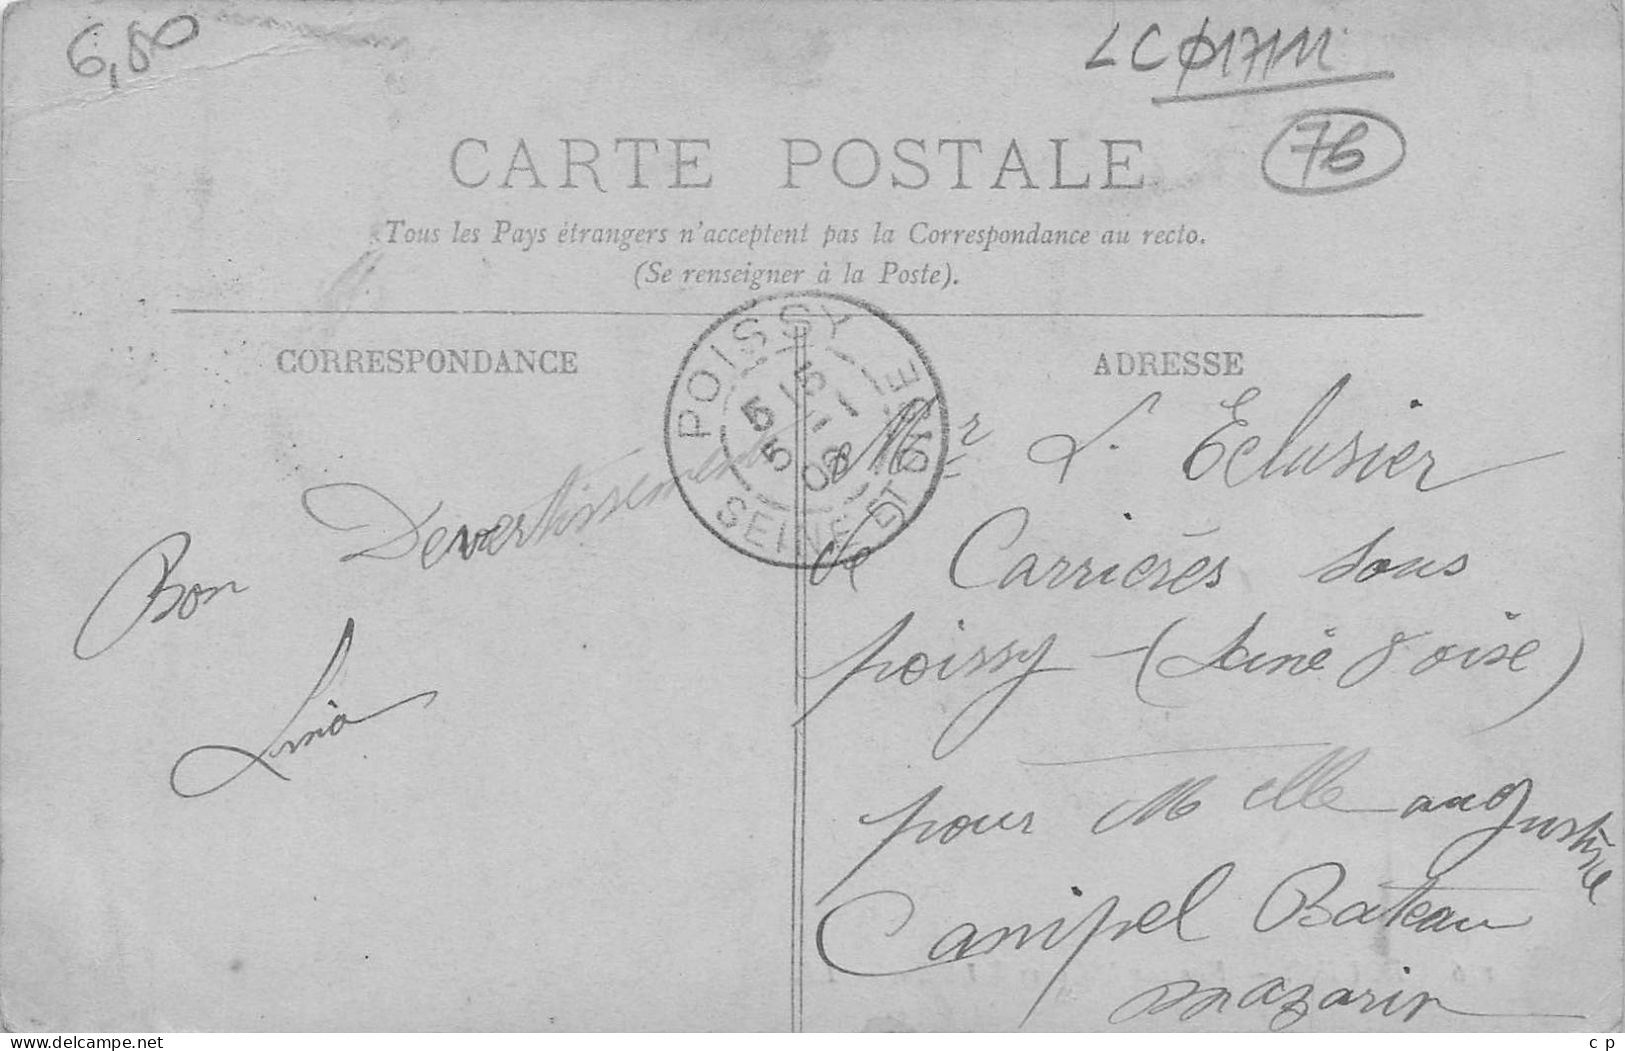 6,80
LC Ø17111
76
CARTE POSTALE
Tous les Pays étrangers n'acceptent pas la Correspondance au recto.
(Se renseigner à la Poste).
CORRESPONDANCE
ADRESSE
POISSY
5 15
5 - 1
08
SEINE ET OISE
Bon Devertissement
Mr L. Eclusier
de Carrières sous
poissy (seine & oise)
pour Melle augustine
Canipel Bateau
mazarin
www.delcampe.net
c p